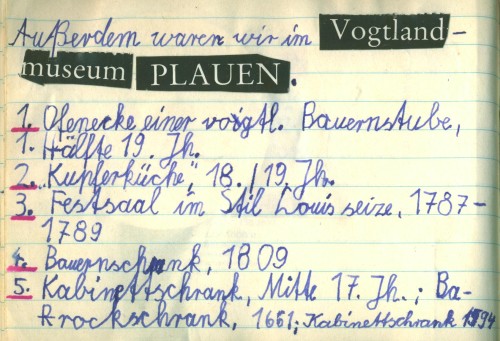 Außerdem waren wir im Vogtland-
museum PLAUEN.
1. Ofenecke einer voigtl. Bauernstube,
1. Hälfte 19. Jh.
2. "Kupferküche", 18./19. Jh.
3. Festsaal im Stil Louis seize, 1787-
1789
4. Bauernschrank, 1809
5. Kabinettschrank, Mitte 17. Jh.; Ba-
rockschrank, 1661; Kabinettschrank